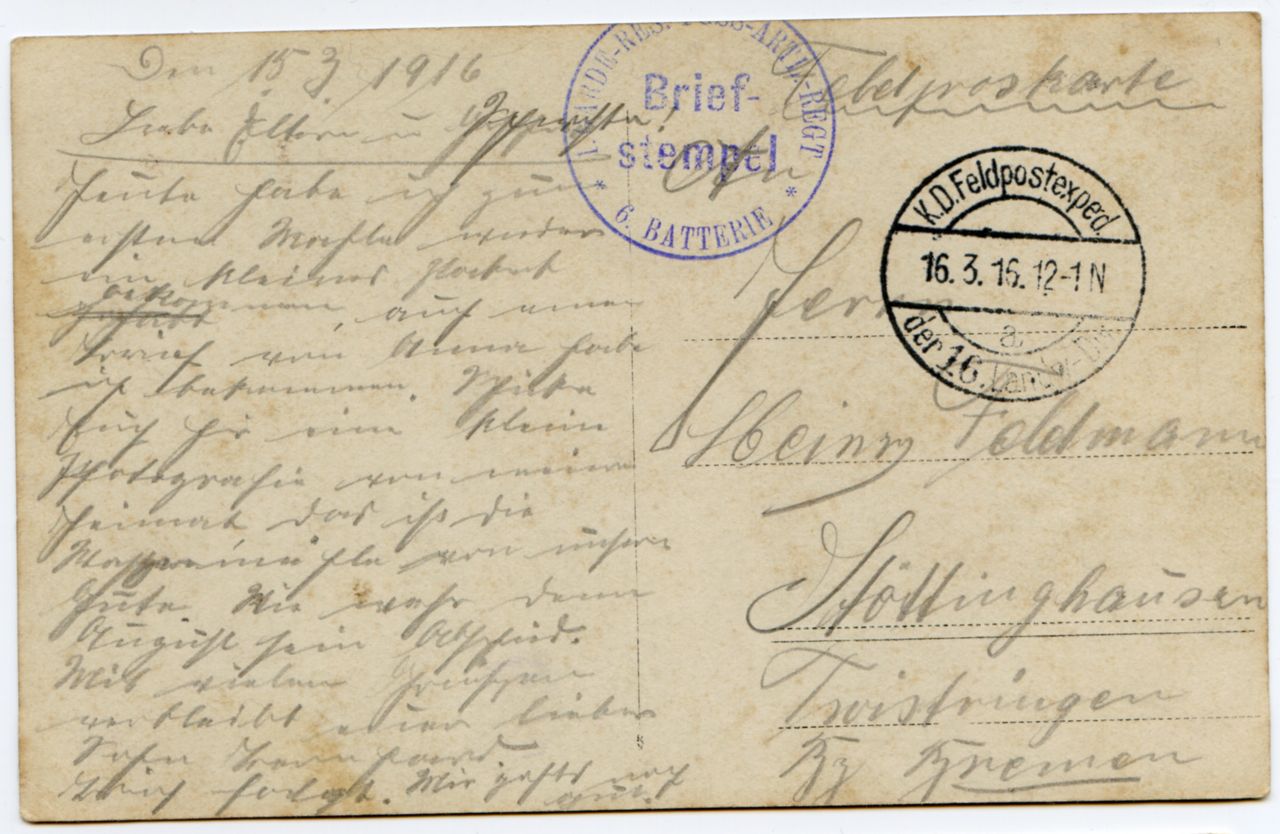 Den 15 3 1916
Liebe Eltern u Geschwister!
Heute habe ich zum
ersten Mahle wieder
ein kleines Packet
bekommen, auch einen
Brief von Anna habe
ich bekommen. Schicke
Euch hir eine kleine
Photografie von meine
Heimat das ist die
von unsere
Wie wahr denn
August sein Abschied.
Mit vielen Grüßen
verbleibt euer lieber
Sohn Bernhard
Brief folgt. Mir gehts noch
gut.
GARDE-RES. FUSS-ARTL-REGT
Brief-
stempel
* 6. BATTERIE *
Feldpostkarte
An
K.D.Feldpostexped.
16.3.16.12-1N
a.
der 16. Landw.-Div.
Herrn
Heinr Feldmann
Stöttinghausen
Twistringen
Bz Bremen